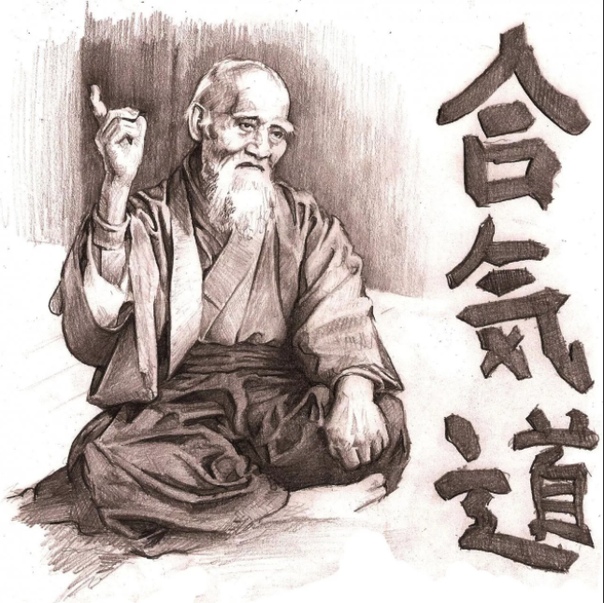 合気道